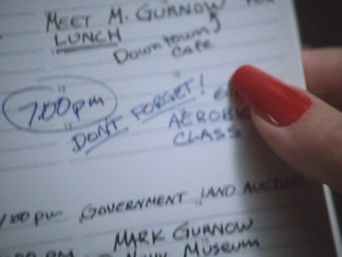 MEET M. GURNOW
LUNCH
DOWNTOWN
CAFE
7:00pm
DONT FORGET!
AEROBIC
CLASS
:00 pm GOVERNMENT LAND
MARK GURNOW
MUSEUM